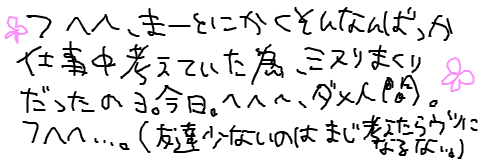 フヘヘ、まーとにかくそんなんばっか
仕事中考えていた為、ミスりまくり
だったのヨ。今日。ヘヘヘ、ダメ人間。
フヘヘ…。(友達少ないのはまじ考えたらウツになるない。)